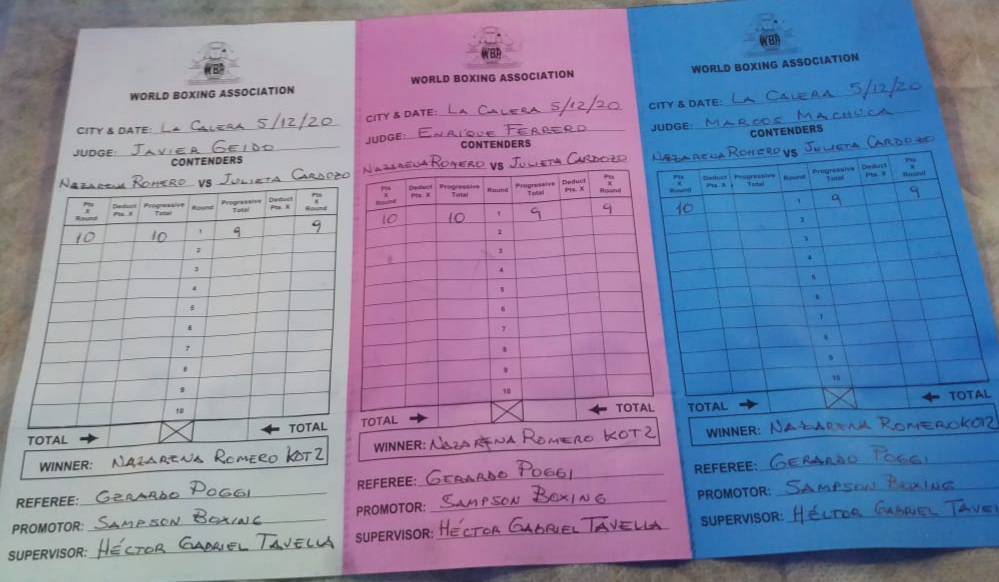 WBA
WORLD BOXING ASSOCIATION
CITY & DATE: LA CALERA 5/12/20
JUDGE: JAVIER GEIDO
CONTENDERS
NAZARENA ROMERO VS JULIETA CARDOZO
Pts X Round Deduct Pts. X Progressive Total Round Progressive Total Deduct Pts. X Pts X Round
10 10 1 9 9
2
3
4
5
6
7
8
9
10
TOTAL TOTAL
WINNER: NAZARENA ROMERO KOT2
REFEREE: GERARDO POGGI
PROMOTOR: SAMPSON BOXING
SUPERVISOR: HÉCTOR GABRIEL TAVELLA
WBA
WORLD BOXING ASSOCIATION
CITY & DATE: LA CALERA 5/12/20
JUDGE: ENRIQUE FERRERO
CONTENDERS
NAZARENA ROMERO VS JULIETA CARDOZO
Pts X Round Deduct Pts. X Progressive Total Round Progressive Total Deduct Pts. X Pts X Round
10 10 1 9 9
2
3
4
5
6
7
8
9
10
TOTAL TOTAL
WINNER: NAZARENA ROMERO KOT2
REFEREE: GERARDO POGGI
PROMOTOR: SAMPSON BOXING
SUPERVISOR: HÉCTOR GABRIEL TAVELLA
WBA
WORLD BOXING ASSOCIATION
CITY & DATE: LA CALERA 5/12/20
JUDGE: MARCOS MACHUCA
CONTENDERS
NAZARENA ROMERO VS JULIETA CARDOZO
Pts X Round Deduct Pts. X Progressive Total Round Progressive Total Deduct Pts. X Pts X Round
10 1 9 9
2
3
4
5
6
7
8
9
10
TOTAL TOTAL
WINNER: NAZARENA ROMERO KOT2
REFEREE: GERARDO POGGI
PROMOTOR: SAMPSON BOXING
SUPERVISOR: HÉCTOR GABRIEL TAVEL